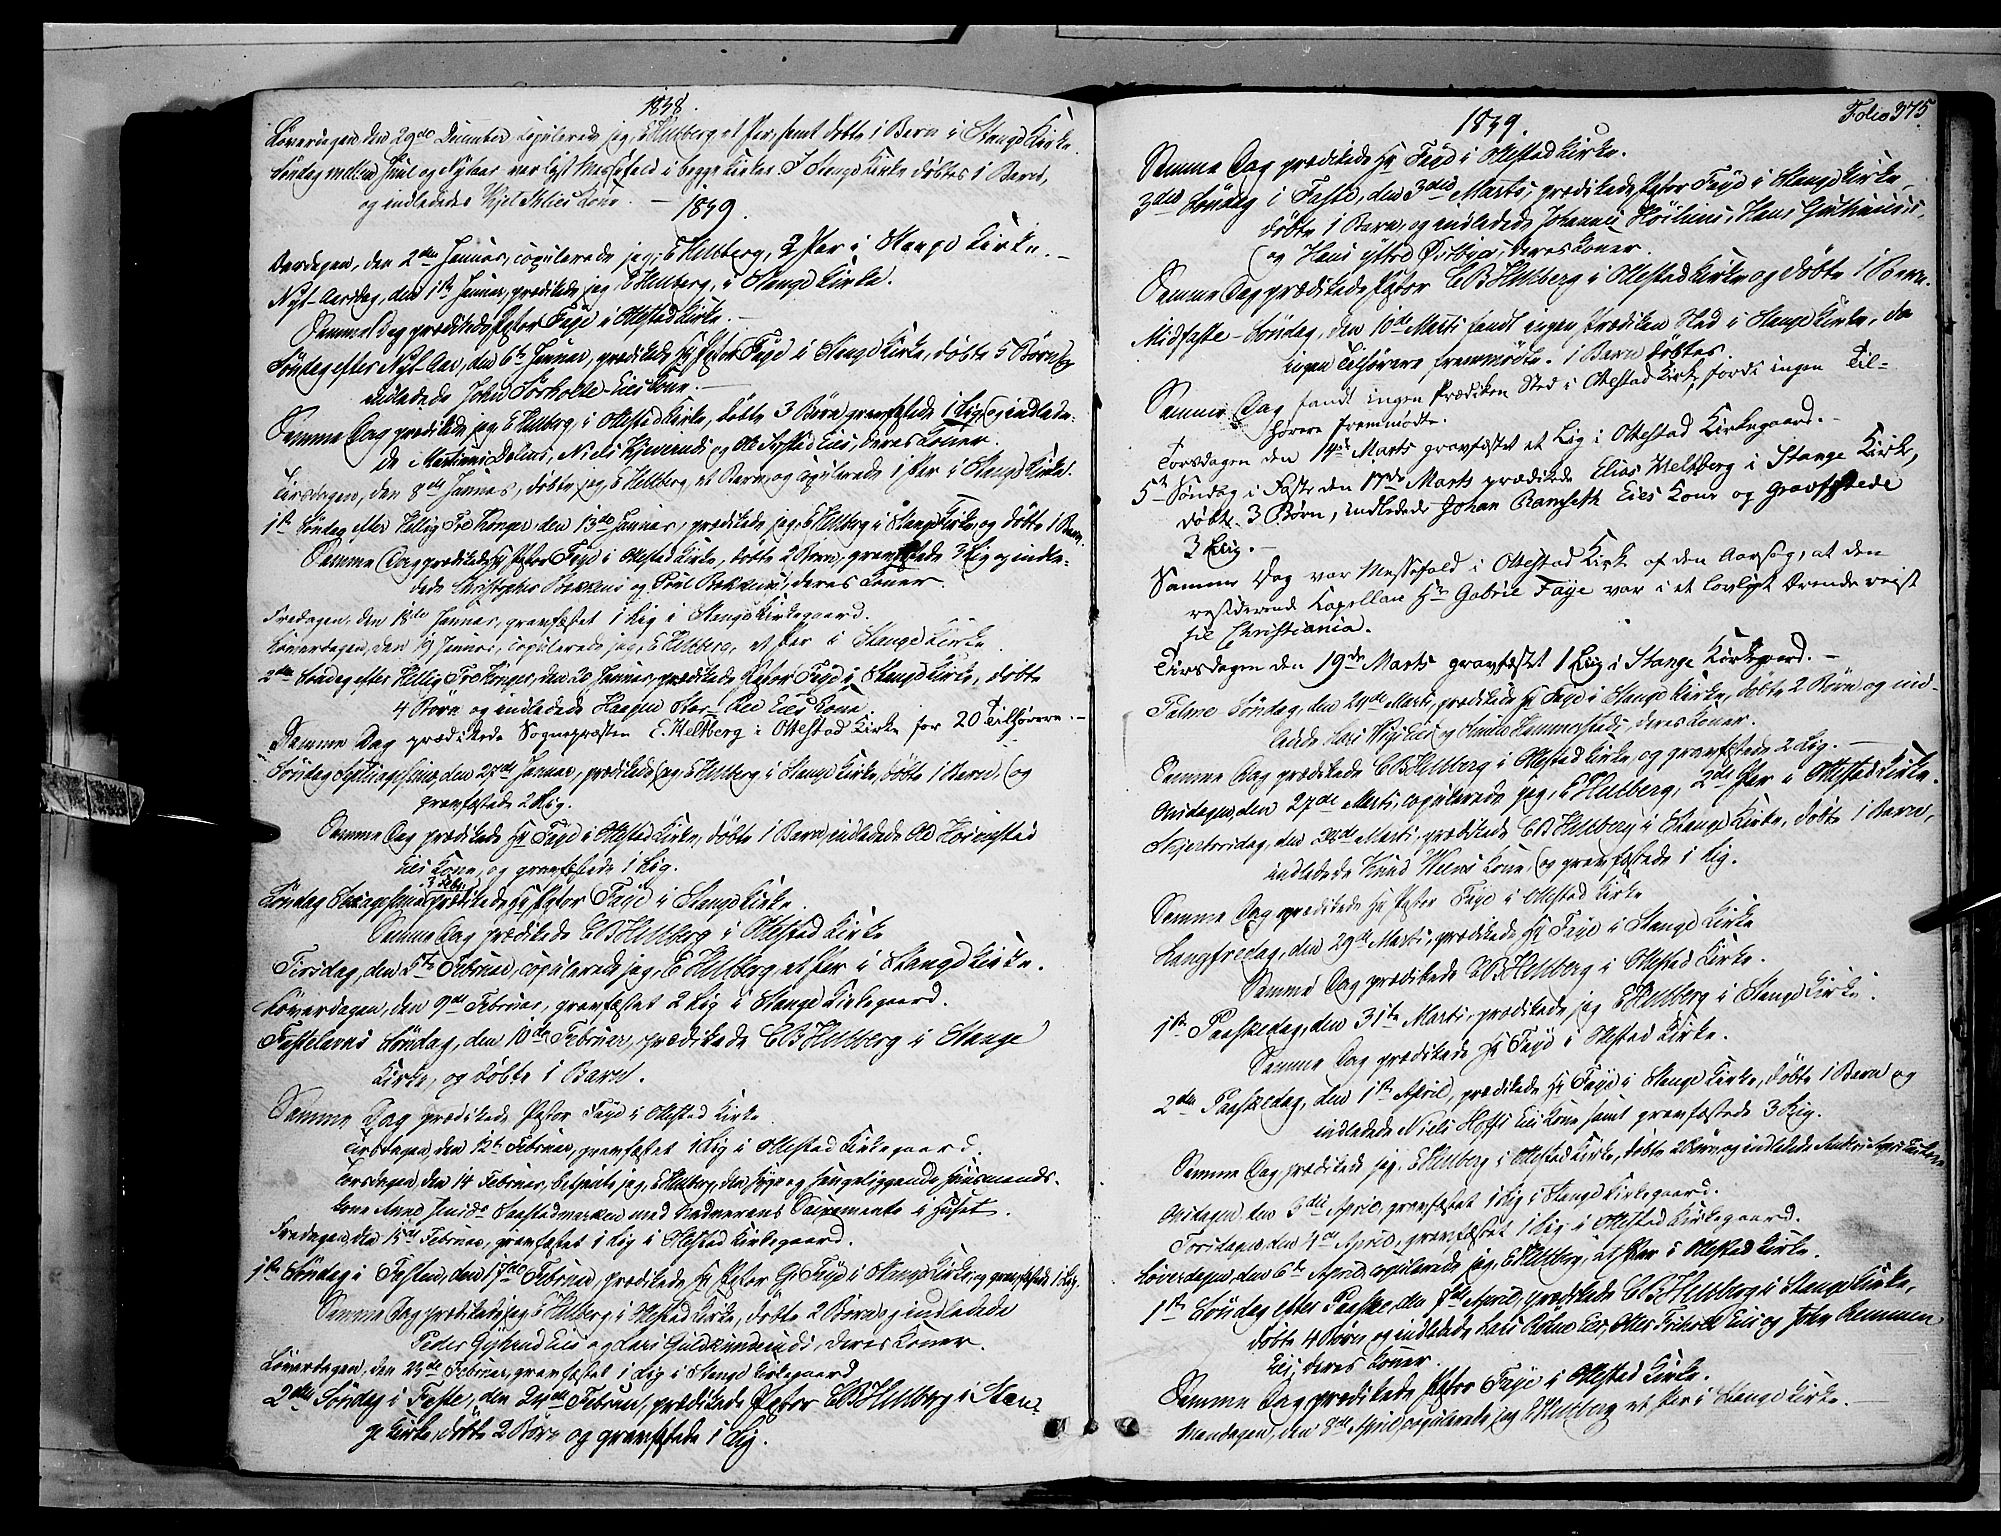 1838.
Løverdagen den 29de December copulerede jeg, E Heltberg et Par, samt døbte 1 Barn i Stange Kirke.
Søndag mellem Juul og Nytaar var lyst Messefald i begge Kirker. I Stange Kirke døbtes 1 Barn,
og indlededes Kone. —
1839.
Onsdagen, den 2den Januar, copulerede jeg, E Heltberg, 2 Par i Stange Kirke. —
Nyt-Aarsdag, den 1ste Januar, prædikede jeg E Heltberg, i Stange Kirke.
Samme Dag prædikede Pastor Faye i Ottestad Kirke. —
Søndag efter Nyt-Aar, den 6te Januar, prædikede Hr Pastor Faye i Stange Kirke, døbte 5 Børn og
indledede John Sørholte-Eies Kone. —
Samme Dag prædikede jeg E Heltberg, i Ottestad Kirke, døbte 3 Børn, gravfæstede 1 Lig og indlede-
de Martinus Dælins, Niels og Ole Eies, deres Koner.
Tirsdagen, den 8de Januar, døbte jeg, E Heltberg, et Barn, og copulerede 1 Par i Stange Kirke.
1ste Søndag efter Hellig Tre Konger, den 13de Januar, prædikede jeg, E Heltberg i Stange Kirke, og døbte 1 Barn.
Samme Dag prædikede Hr Pastor Faye i Ottestad Kirke, døbte 2 Børn, gravfæstede 3 Lig og indle-
dede Christopher Bekkens og Poul Bekkens, deres Koner.
Fredagen, den 18de Januar, gravfæstet 1 Lig i Stange Kirkegaard.
Løverdagen, den 19 Januar, copulerede jeg, E Heltberg, et Par i Stange Kirke.
2den Søndag efter Hellig Tre Konger, den 20 Januar, prædikede Pastor Faye i Stange Kirke, døbte
4 Børn og indledede Haagen Eies Kone.
Samme Dag prædikede Sognepræsten E. Heltberg i Ottestad Kirke for 20 Tilhørere. —
Søndag Septuagesima, den 27de Januar, prædikede jeg, E Heltberg i Stange Kirke, døbte 1 Barn, og
gravfæstede 2 Lig.
Samme Dag prædikede Hr Faye i Ottestad Kirke, døbte 1 Barn, indledede Ole
Eies Kone, og gravfæstede 1 Lig.
Søndag Sexagesima 3 Febr. prædikede Hr Pastor Faye i Stange Kirke.
Samme Dag prædikede CB Heltberg i Ottestad Kirke
Tirsdag, den 5te Februar, copulerede jeg, E Heltberg, et Par i Stange Kirke.
Løverdagen, den 9de Februar, gravfæstet 2 Lig i Stange Kirkegaard.
Fastelavns Søndag, den 10de Februar, prædikede CB Heltberg i Stange
Kirke, og døbte 1 Barn.
Samme Dag prædikede Pastor Faye i Ottestad Kirke
Tirsdagen, den 12te Februar, gravfæstet 1 Lig i Ottestad Kirkegaard.
Torsdagen, den 14 Februar, betjente jeg, E Heltberg, den syge og sengeliggende Huusmands-
kone Anne Saastadmarken med Nadverens Sacramente i Huset.
Fredagen, den 15de Februar, gravfæstet 1 Lig i Ottestad Kirkegaard.
1ste Søndag i Fasten, den 17de Februar, prædikede Hr Pastor G: Faye i Stange Kirke, og gravfæstede 1 Lig.
Samme Dag prædikede jeg E Heltberg, i Ottestad Kirke, døbte 2 Børn og indledede
Peder Eies og Lars deres Koner.
Løverdagen, den 23de Februar, gravfæstet 1 Lig i Stange Kirkegaard
2den Søndag i Faste, den 24de Februar, prædikede Pastor CB Heltberg i Stan-
ge Kirke, døbte 2 Børn og gravfæstede 1 Lig.
1839.
Folio 375
Samme Dag prædikede Hr Faye i Ottestad Kirke.
3die Søndag i Faste, den 3die Marts, prædikede Pastor Faye i Stange Kirke,
døbte 1 Barn, og indledede Johannes Hans
og Hans Østbyes, deres Koner.
Samme Dag prædikede Pastor CB Heltberg i Ottestad Kirke og døbte 1 Barn.
Midfaste-Søndag, den 10de Marts fandt ingen Prædiken Sted i Stange Kirke, da
ingen Tilhørere fremmødte. 1 Barn døbtes.
Samme Dag fandt ingen Prædiken Sted i Ottestad Kirke, fordi ingen Til-
hørere fremmødte.
Torsdagen den 14de Marts gravfæstet et Lig i Ottestad Kirkegaard. —
5te Søndag i Faste, den 17de Marts prædikede Elias Heltberg i Stange Kirke,
døbte 3 Børn, indledede Johan Ramseth Eies Kone og gravfæstede
3 Lig. —
Samme Dag var Messefald i Ottestad Kirke af den Aarsag, at den
residerende Kapellan Hr Gabriel Faye var i et lovligt Ærende reist
til Christiania.
Tirsdagen den 19de Marts gravfæstet 1 Lig i Stange Kirkegaard. —
Palme Søndag, den 24de Marts, prædikede Hr Faye i Stange Kirke, døbte 2 Børn og ind-
ledede Lars Eies og Hammerstads, deres Koner.
Samme Dag prædikede CB Heltberg i Ottestad Kirke og gravfæstede 2 Lig. —
Onsdagen, den 27de Marts, copulerede jeg, E Heltberg, 2de Par i Ottestad Kirke.
Skjertorsdag, den 28de Marts, prædikede CB Heltberg i Stange Kirke, døbte 1 Barn,
indledede Knud Kone, og gravfæstede 1 Lig.
Samme Dag prædikede Hr Pastor Faye i Ottestad Kirke
Langfredag, den 29de Marts, prædikede Hr Faye i Stange Kirke
Samme Dag prædikede CB Heltberg i Ottestad Kirke.
1ste Paaskedag, den 31te Marts, prædikede jeg E Heltberg i Stange Kirke.
Samme Dag prædikede Hr Faye i Ottestad Kirke.
2den Paaskedag, den 1ste April, prædikede Hr Faye i Stange Kirke, døbte 1 Barn og
indledede Niels Eies Kone samt gravfæstede 3 Lig.
Samme Dag prædikede jeg, E Heltberg, i Ottestad Kirke, døbte 2 Børn og indledede
Onsdagen, den 3die April, gravfæstet 1 Lig i Stange Kirkegaard.
Torsdagen, den 4de April, gravfæstet 1 Lig i Ottestad Kirkegaard.
Løverdagen, den 6te April, copulerede jeg, E Heltberg, et Par i Ottestad Kirke.
1ste Søndag efter Paaske, den 7de April, prædikede CB Heltberg i Stange Kirke,
døbte 4 Børn og indledede Lars Eies, Eies og John
Eies, deres Koner.
Samme Dag prædikede Pastor Faye i Ottestad Kirke.
Mandagen, den 8de April, copulerede jeg E Heltberg et Par i Stange Kirke. —